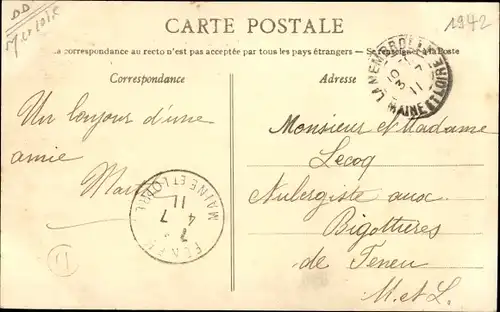 DD
M et Loire
1942
CARTE POSTALE
La correspondance au recto n'est pas acceptée par tous les pays étrangers. — Se renseigner à la Poste
Correspondance
Adresse
LA MEMBROLLE
10
3 7
11
MAINE ET LOIRE
Un bonjour d'une
amie
Marie
MAINE ET LOIRE
7
4 7
11
Monsieur et Madame
Lecoq
Aubergiste aux
Bigottières
de Feneu
M. et L.